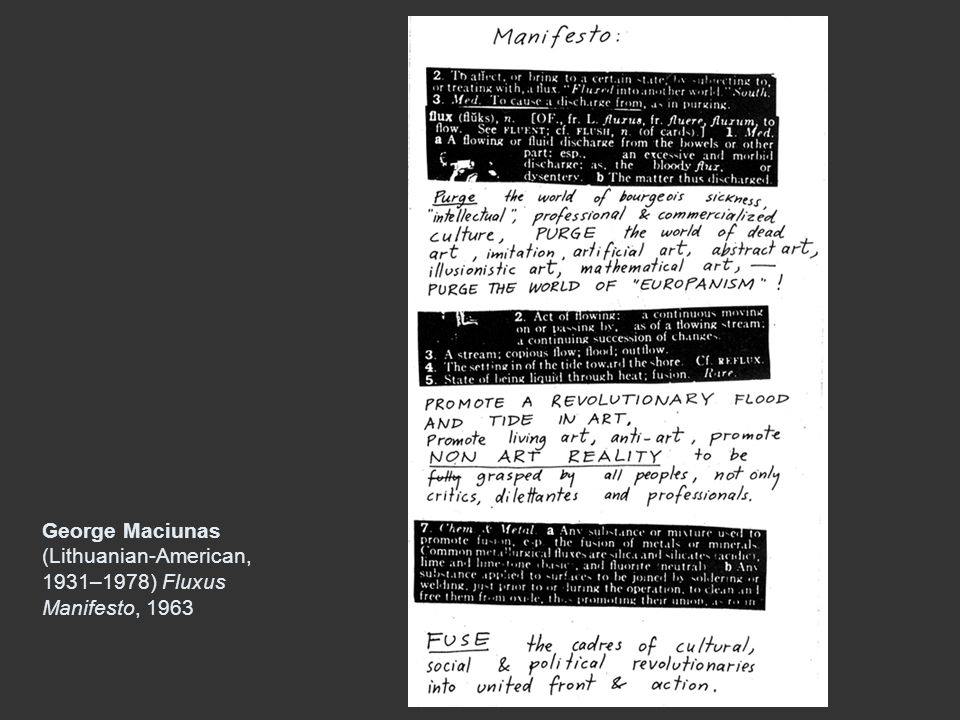 Manifesto:
2. To affect, or bring to a certain state, by subjecting to,
or treating with, a flux. "Fluxed into another world." South.
3. Med. To cause a discharge from, as in purging.
flux (flŭks), n. [OF., fr. L. fluxus, fr. fluere, fluxum, to
flow. See FLUENT; cf. FLUSH, n. (of cards).] 1. Med.
a A flowing or fluid discharge from the bowels or other
part; esp., an excessive and morbid
discharge; as, the bloody flux, or
dysentery. b The matter thus discharged.
Purge the world of bourgeois sickness,
"intellectual", professional & commercialized
culture, PURGE the world of dead
art, imitation, artificial art, abstract art,
illusionistic art, mathematical art, —
PURGE THE WORLD OF "EUROPANISM"!
2. Act of flowing: a continuous moving
on or passing by, as of a flowing stream;
a continuing succession of changes.
3. A stream; copious flow; flood; outflow.
4. The setting in of the tide toward the shore. Cf. REFLUX.
5. State of being liquid through heat; fusion. Rare.
PROMOTE A REVOLUTIONARY FLOOD
AND TIDE IN ART,
Promote living art, anti-art, promote
NON ART REALITY to be
fully grasped by all peoples, not only
critics, dilettantes and professionals.
7. Chem. & Metal. a Any substance or mixture used to
promote fusion, esp. the fusion of metals or minerals.
Common metallurgical fluxes are silica and silicates (acidic),
lime and limestone (basic), and fluorite (neutral). b Any
substance applied to surfaces to be joined by soldering or
welding, just prior to or during the operation, to clean and
free them from oxide, thus promoting their union, as rosin
FUSE the cadres of cultural,
social & political revolutionaries
into united front & action.
George Maciunas
(Lithuanian-American,
1931–1978) Fluxus
Manifesto, 1963